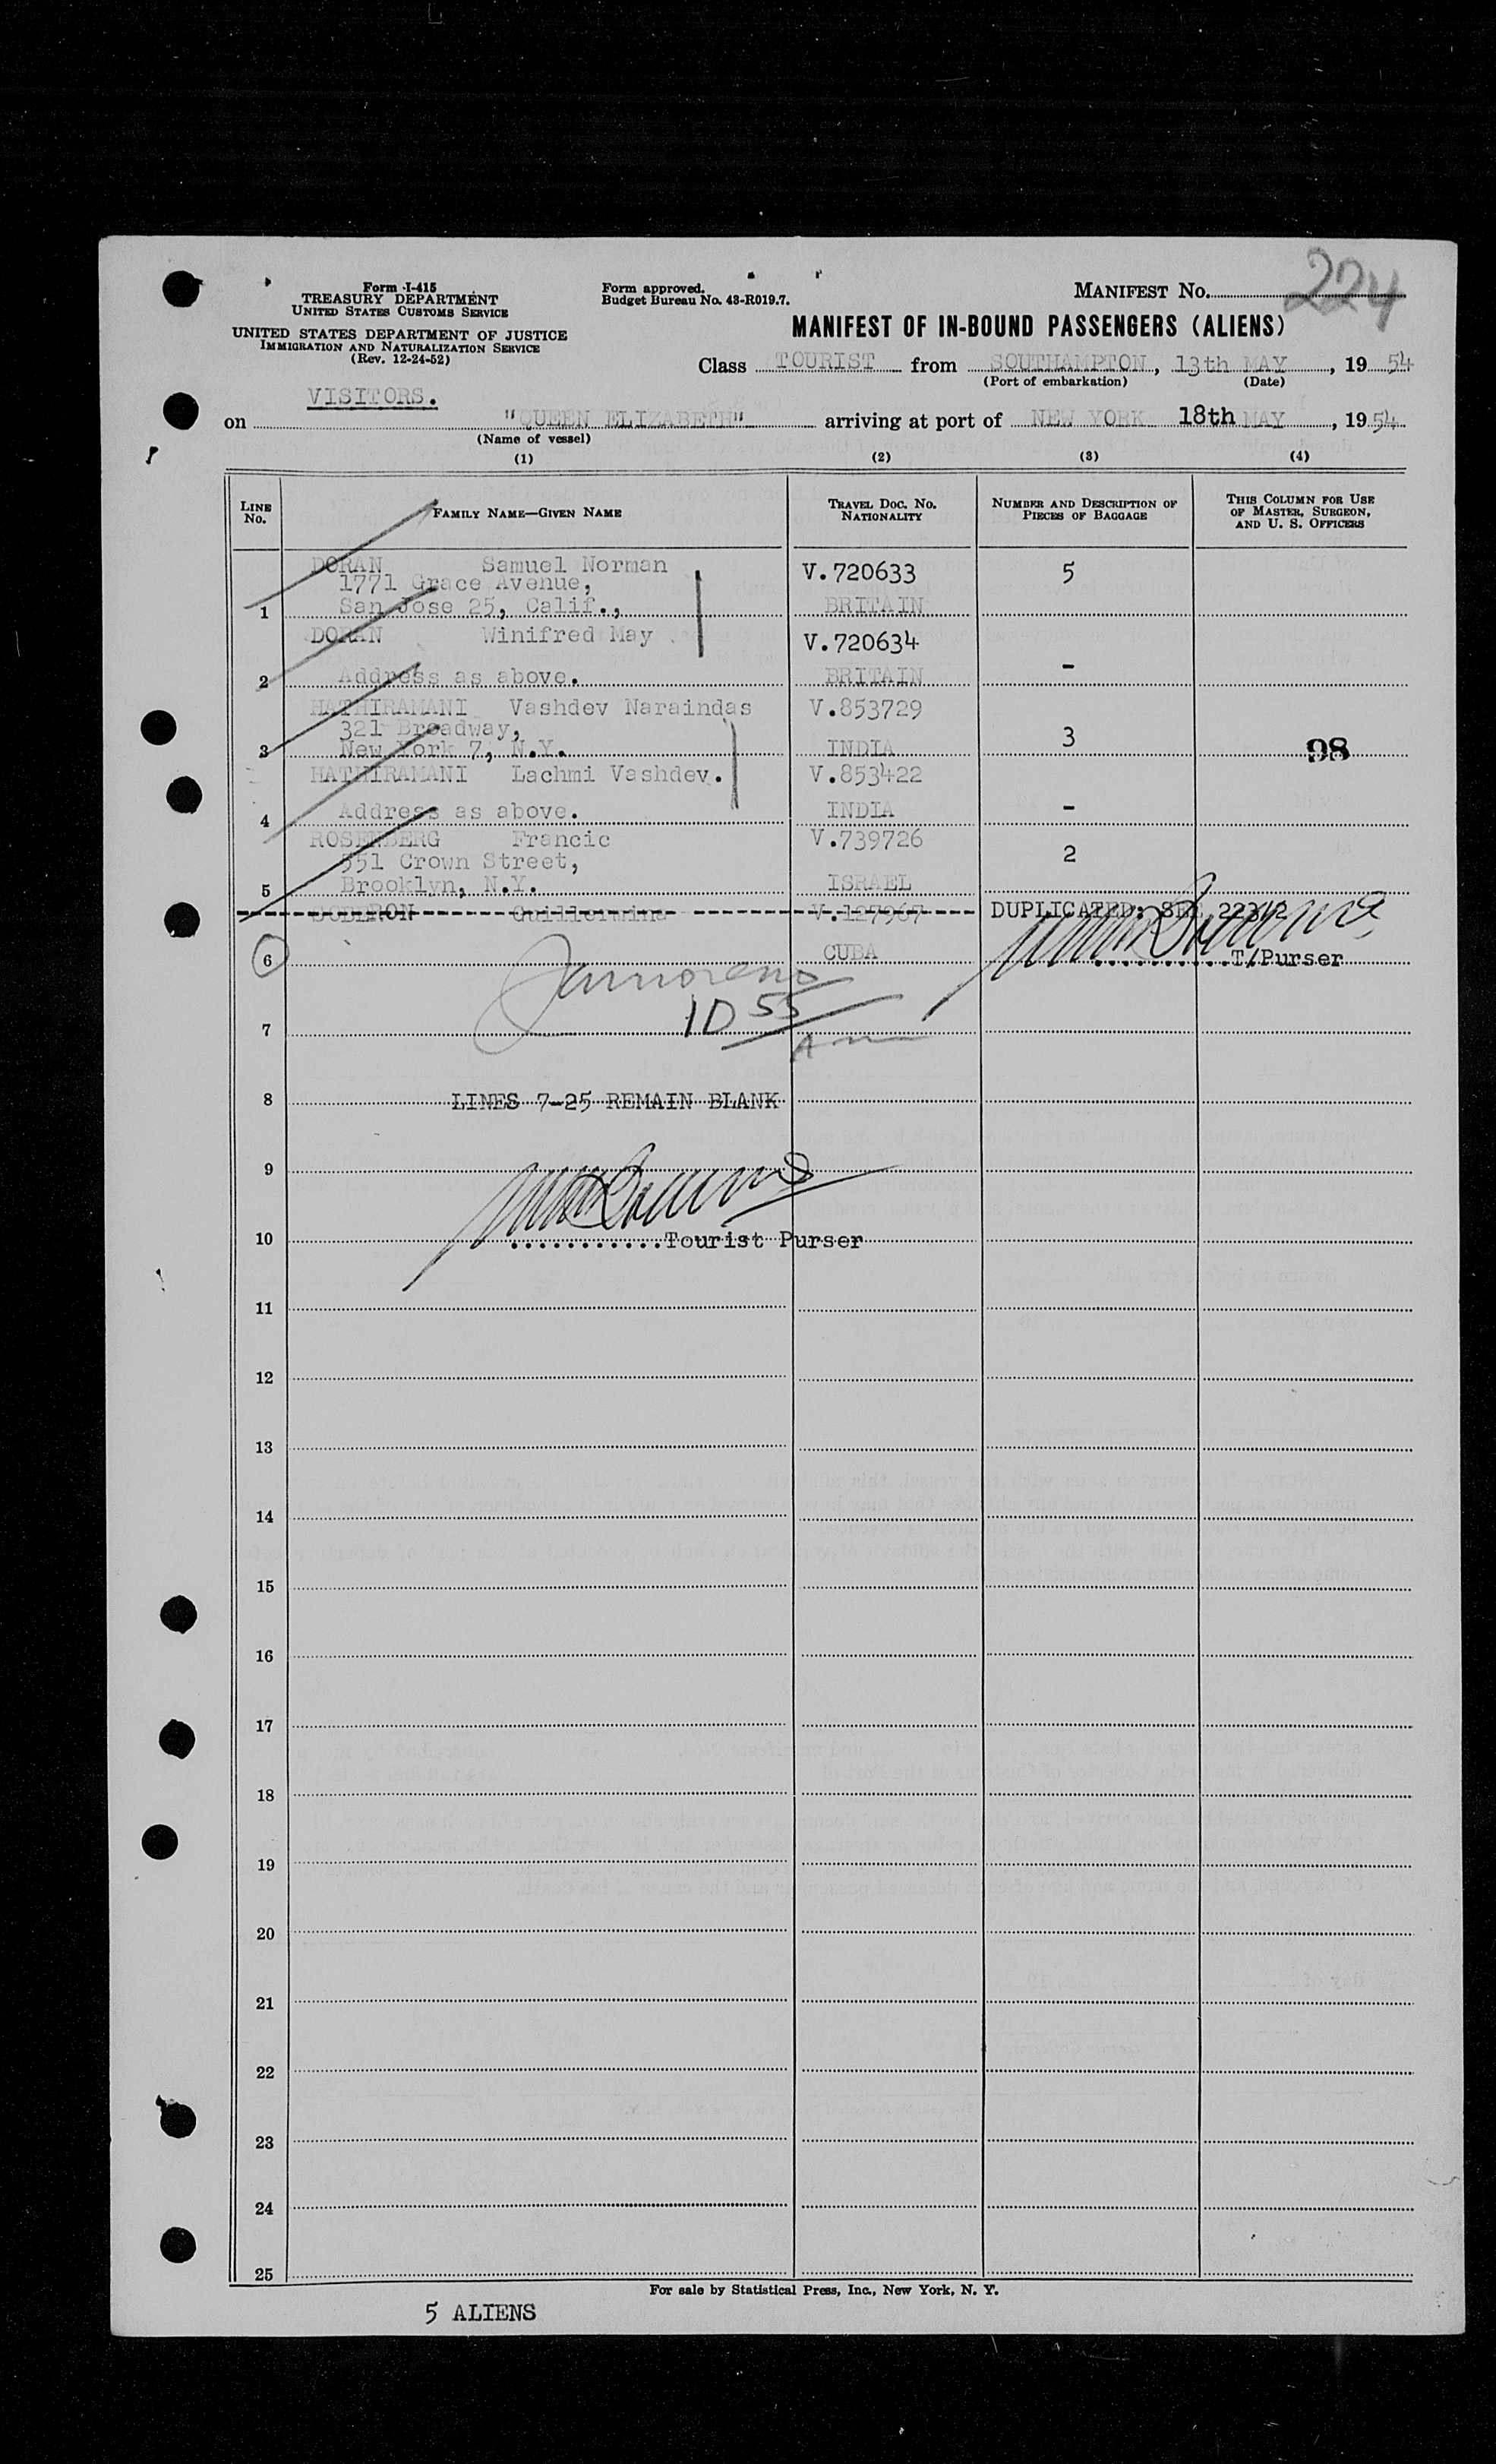 224
Form I-415
TREASURY DEPARTMENT
UNITED STATES CUSTOMS SERVICE
UNITED STATES DEPARTMENT OF JUSTICE
IMMIGRATION AND NATURALIZATION SERVICE
(Rev. 12-24-52)
Form approved.
Budget Bureau No. 43-R019.7.
MANIFEST No.
MANIFEST OF IN-BOUND PASSENGERS (ALIENS)
Class TOURIST from SOUTHAMPTON, 13th MAY, 1954
(Port of embarkation) (Date)
VISITORS.
on "QUEEN ELIZABETH" arriving at port of NEW YORK 18th MAY, 1954
(Name of vessel)
(1) (2) (3) (4)
LINE No. FAMILY NAME—GIVEN NAME TRAVEL DOC. No. NATIONALITY NUMBER AND DESCRIPTION OF PIECES OF BAGGAGE THIS COLUMN FOR USE OF MASTER, SURGEON, AND U. S. OFFICERS
DORAN Samuel Norman V.720633 5
1771 Grace Avenue,
1 San Jose 25, Calif., BRITAIN
DORAN Winifred May V.720634 -
2 Address as above. BRITAIN
HATHIRAMANI Vashdev Naraindas V.853729
321 Broadway, 3
3 New York 7, N.Y. INDIA 98
HATHIRAMANI Lachmi Vashdev. V.853422
4 Address as above. INDIA -
ROSENBERG Francic V.739726
551 Crown Street, 2
5 Brooklyn, N.Y. ISRAEL
SOBERON Guillermina V.127967 DUPLICATED: SEE 223/2
6 CUBA T/Purser
1D 55
7
8 LINES 7-25 REMAIN BLANK
9
10 Tourist Purser
11
12
13
14
15
16
17
18
19
20
21
22
23
24
25
For sale by Statistical Press, Inc., New York, N. Y.
5 ALIENS